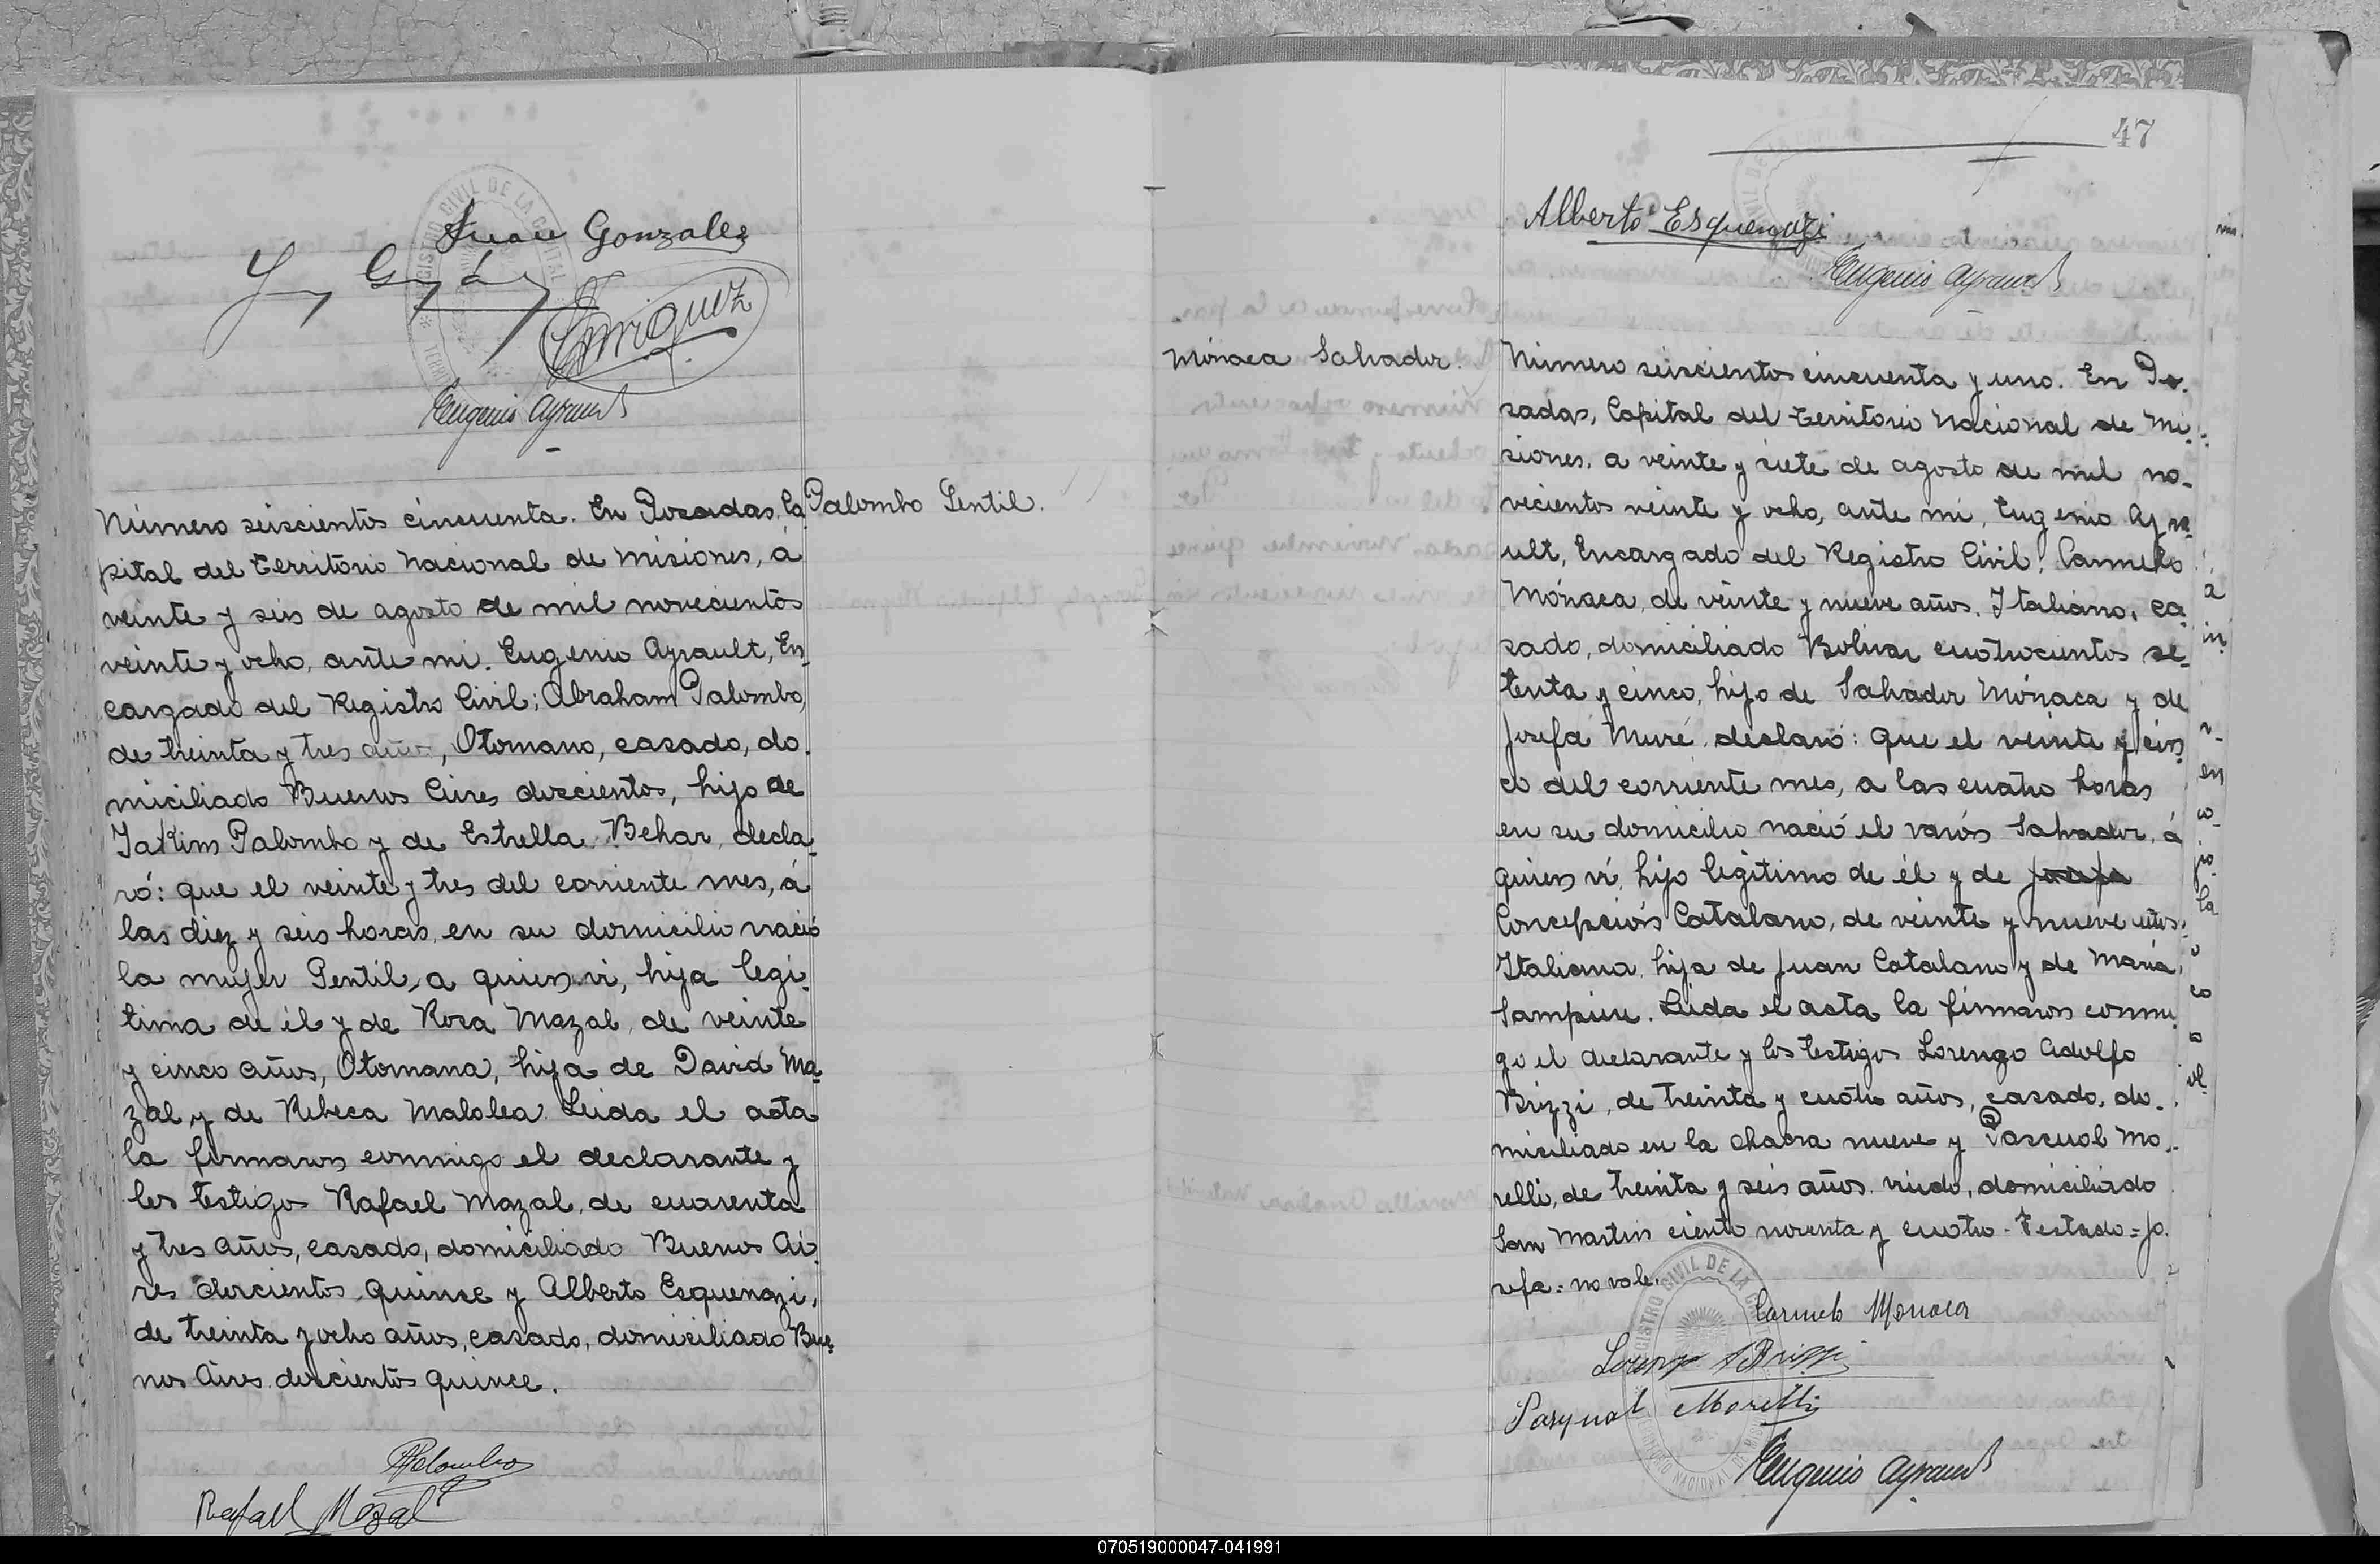 Juan Gonzalez
Enriquez
Eugenio Ayrault
Palombo Gentil.
Número seiscientos cincuenta. En Posadas, Ca
pital del territorio Nacional de Misiones, á
veinte y seis de agosto de mil novecientos
veinte y ocho, ante mi. Eugenio Ayrault, En
cargado del Registro Civil; Abraham Palombo,
de treinta y tres años, Otomano, casado, do.
miciliado Buenos Aires doscientos, hijo de
Palombo y de Estrella Behar, decla_
ró: que el veinte y tres del corriente mes, á
las diez y seis horas, en su domicilio nació
la mujer Gentil, a quien vi, hija legi_
tima de él y de Rosa Mazal, de veinte
y cinco años, Otomana, hija de David Ma_
zal y de Rebeca. Leida el acta
la firmaron conmigo el declarante y
los testigos Rafael Mazal, de cuarenta
y tres años, casado, domiciliado Buenos Ai_
res doscientos quince y Alberto Esquenazi,
de treinta y ocho años, casado, domiciliado Bue_
nos Aires doscientos quince.
APalombo
Rafael Mazal
47
Alberto Esquenazi
Eugenio Ayrault
Mónaca Salvador.
Número seiscientos cincuenta y uno. En Po.
sadas, Capital del territorio Nacional de Mi_
siones, a veinte y siete de agosto de mil no_
vecientos veinte y ocho, ante mi, Eugenio Ayra
ult, Encargado del Registro Civil: Carmelo
Mónaca, de veinte y nueve años, Italiano, ca_
sado, domiciliado Bolivar cuatrocientos se_
tenta y cinco, hijo de Salvador Mónaca y de
Josefa Muré, declaró: que el veinte y cin_
co del corriente mes, a las cuatro horas
en su domicilio nació el varón Salvador, á
quien vi, hijo legitimo de él y de Josefa
Concepción Catalano, de veinte y nueve años,
Italiana, hija de Juan Catalano y de Maria
. Leida el acta la firmaron conmi_
go el declarante y los testigos Lorenzo Adolfo
Brizzi, de treinta y cuatro años, casado, do_
miciliado en la chacra nueve y Pascual Mo_
relli, de treinta y seis años, viudo, domiciliado
San Martin ciento noventa y cuatro - Testado = Jo.
sefa = no vale.
Carmelo Monaca
Lorenzo A Brizzi
Pasqual Morelli
Eugenio Ayrault
070519000047-041991